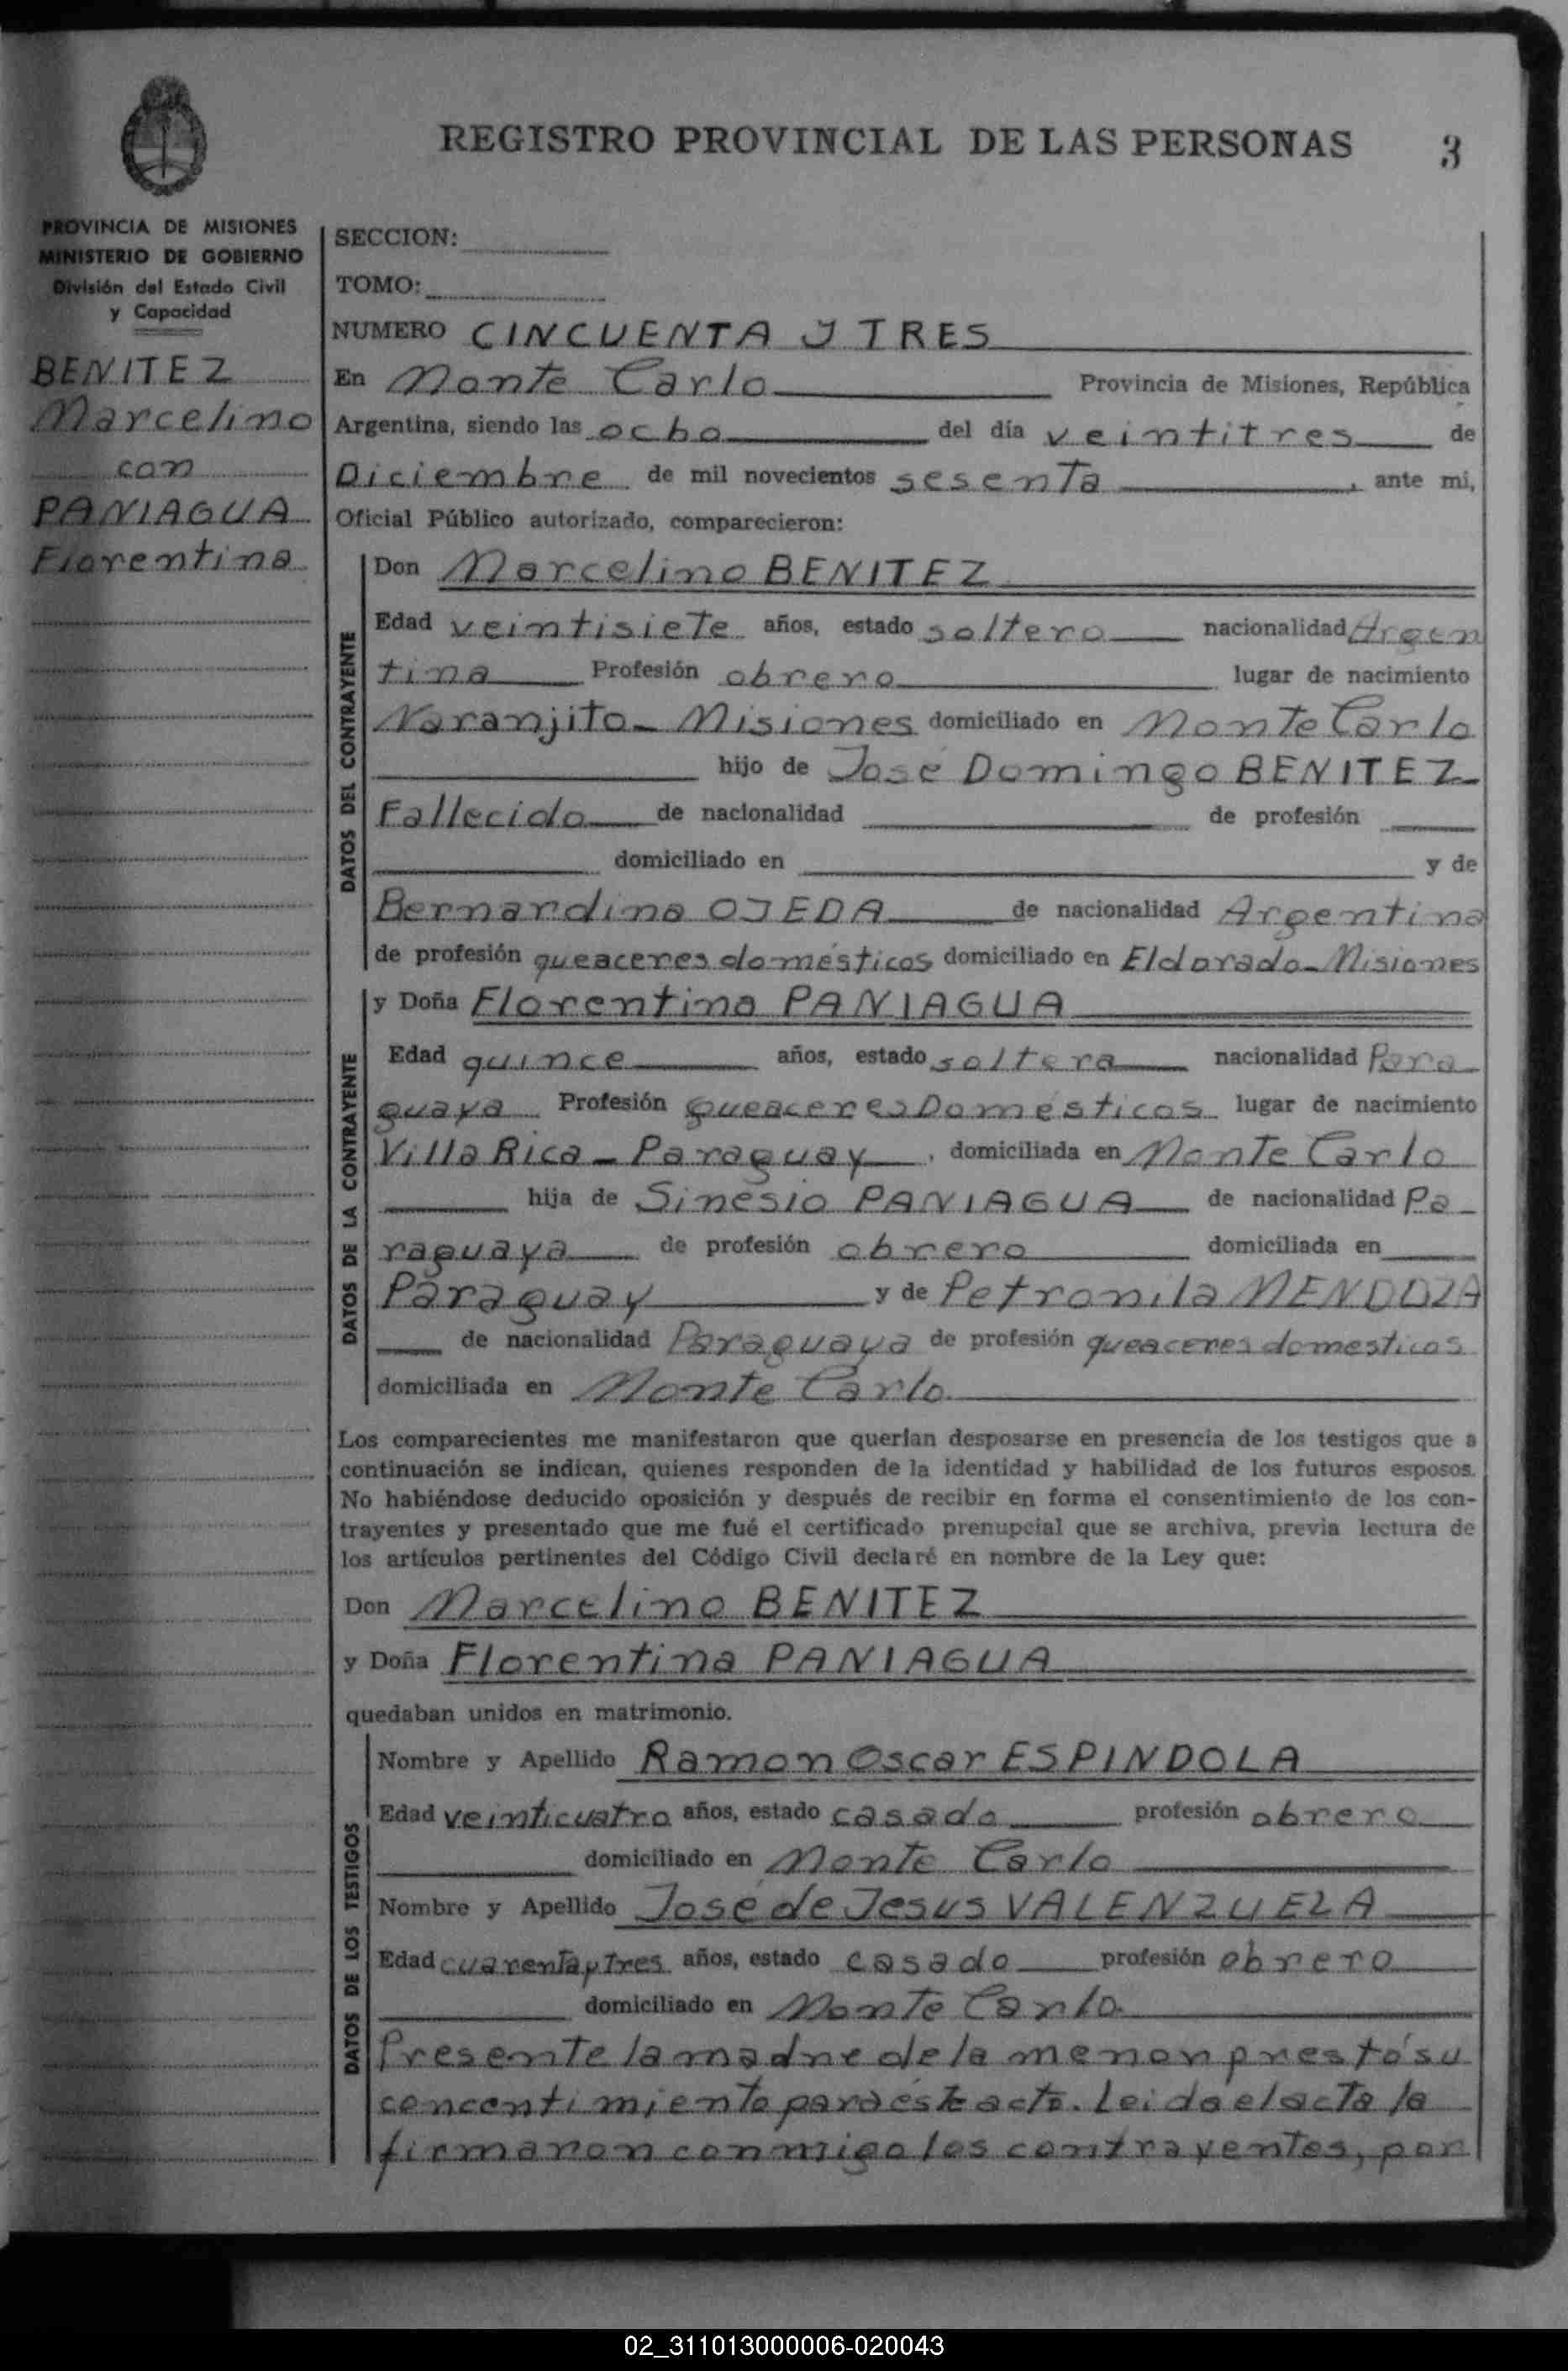 REGISTRO PROVINCIAL DE LAS PERSONAS 3
PROVINCIA DE MISIONES
MINISTERIO DE GOBIERNO
División del Estado Civil
y Capacidad
BENITEZ
Marcelino
con
PANIAGUA
Florentina
SECCION:
TOMO:
NUMERO CINCUENTA Y TRES
En Monte Carlo Provincia de Misiones, República
Argentina, siendo las ocho del día veintitres de
Diciembre de mil novecientos sesenta, ante mi,
Oficial Público autorizado, comparecieron:
DATOS DEL CONTRAYENTE
Don Marcelino BENITEZ
Edad veintisiete años, estado soltero nacionalidad Argen
tina Profesión obrero lugar de nacimiento
Naranjito - Misiones domiciliado en Monte Carlo
hijo de José Domingo BENITEZ
Fallecido de nacionalidad de profesión
domiciliado en y de
Bernardina OJEDA de nacionalidad Argentina
de profesión queaceres domésticos domiciliado en Eldorado - Misiones
DATOS DE LA CONTRAYENTE
y Doña Florentina PANIAGUA
Edad quince años, estado soltera nacionalidad Para
guaya Profesión queaceres Domésticos lugar de nacimiento
Villa Rica - Paraguay, domiciliada en Monte Carlo
hija de Sinesio PANIAGUA de nacionalidad Pa
raguaya de profesión obrero domiciliada en
Paraguay y de Petronila MENDOZA
de nacionalidad Paraguaya de profesión queaceres domesticos
domiciliada en Monte Carlo.
Los comparecientes me manifestaron que querían desposarse en presencia de los testigos que a
continuación se indican, quienes responden de la identidad y habilidad de los futuros esposos.
No habiéndose deducido oposición y después de recibir en forma el consentimiento de los con-
trayentes y presentado que me fué el certificado prenupcial que se archiva, previa lectura de
los artículos pertinentes del Código Civil declaré en nombre de la Ley que:
Don Marcelino BENITEZ
y Doña Florentina PANIAGUA
quedaban unidos en matrimonio.
DATOS DE LOS TESTIGOS
Nombre y Apellido Ramon Oscar ESPINDOLA
Edad veinticuatro años, estado casado profesión obrero
domiciliado en Monte Carlo
Nombre y Apellido José de Jesus VALENZUELA
Edad cuarenta y tres años, estado casado profesión obrero
domiciliado en Monte Carlo.
Presente la madre de la menor prestó su
concentimiento para éste acto. Leida el acta la
firmaron conmigo los contrayentes, por
02_311013000006-020043